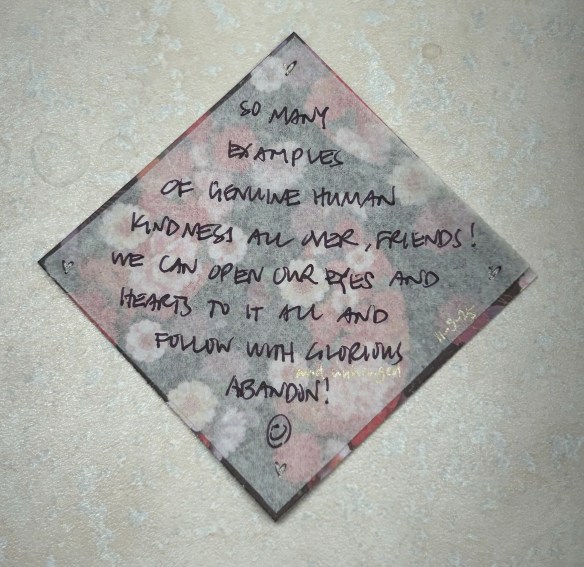 SO MANY
EXAMPLES
OF GENUINE HUMAN
KINDNESS ALL OVER, FRIENDS!
WE CAN OPEN OUR EYES AND
HEARTS TO IT ALL AND
FOLLOW WITH GLORIOUS
ABANDON!